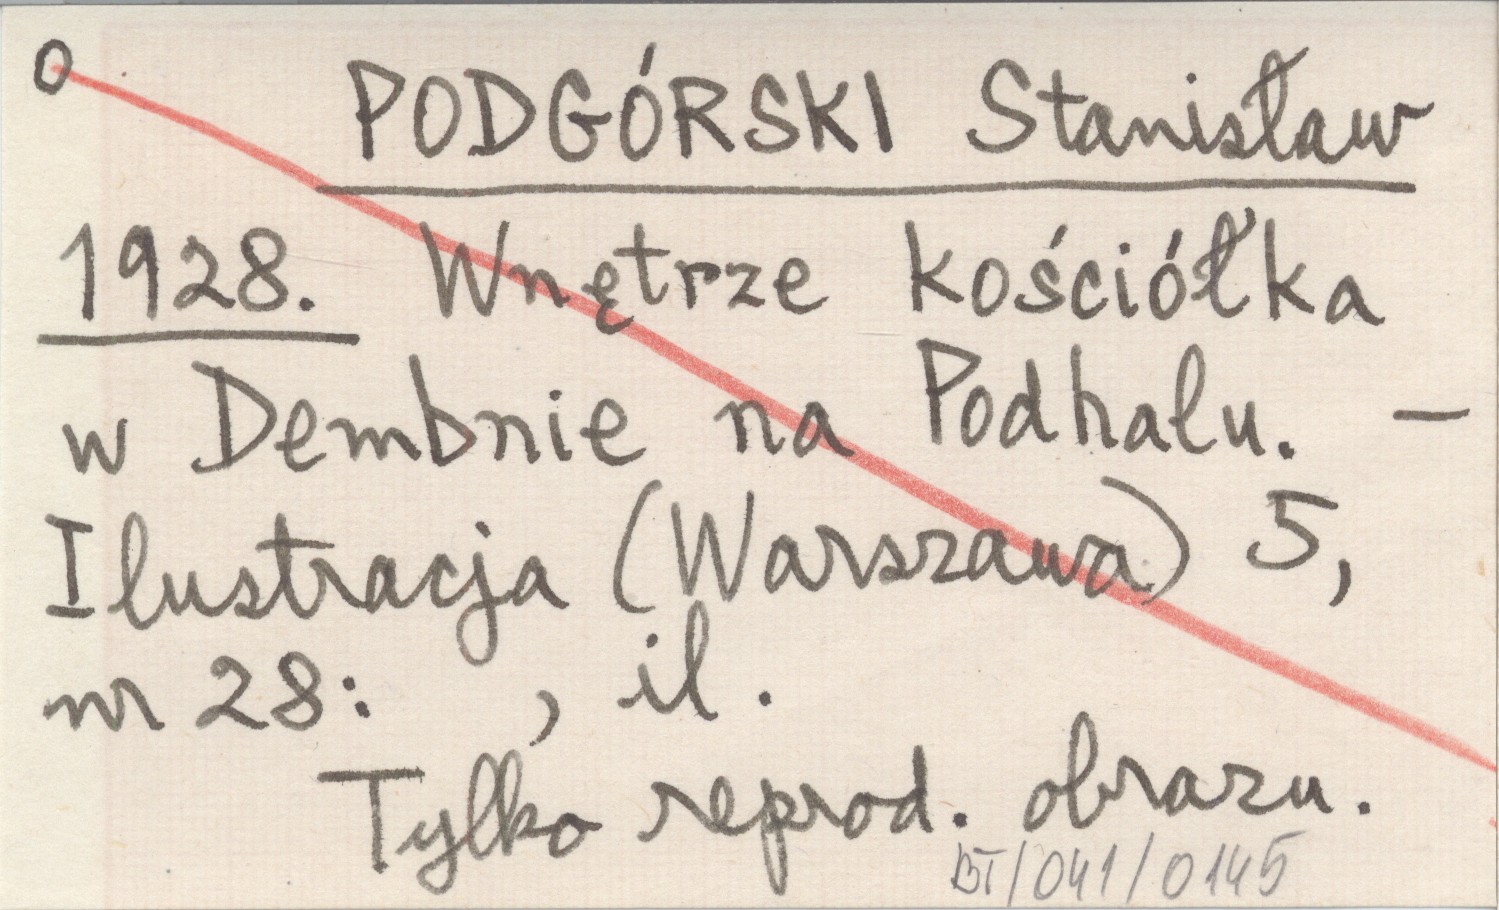 O
PODGÓRSKI Stanisław
1928. Wnętrze kościółka
w Dembnie na Podhalu. –
Ilustracja (Warszawa) 5,
nr 28: , il.
Tylko reprod. obrazu.
BT/041/0145